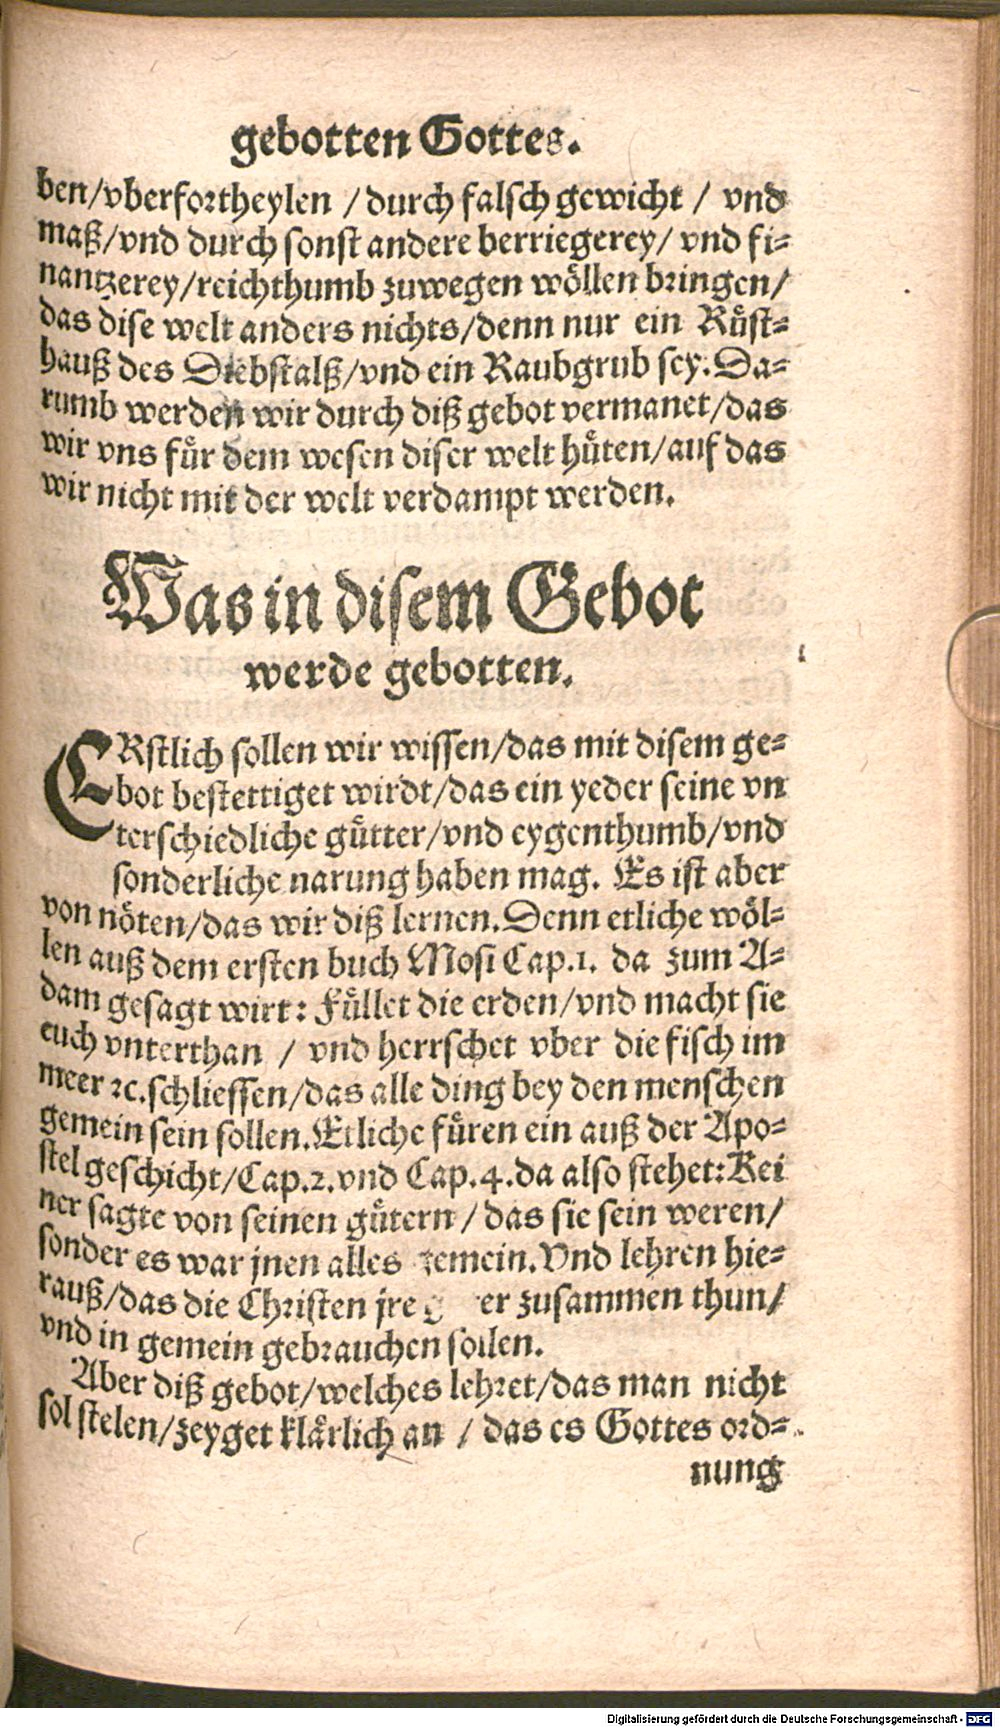 gebotten Gottes.
ben/vberfortheylen / durch falsch gewicht / vnd
maß/vnd durch sonst andere berriegerey/ vnd fi-
nantzerey/reichthumb zuwegen wöllen bringen/
das dise welt anders nichts/denn nur ein Rüst-
hauß des Diebstalß/vnd ein Raubgrub sey. Da-
rumb werden wir durch diß gebot vermanet/das
wir vns für dem wesen diser welt hüten/auf das
wir nicht mit der welt verdampt werden.
Was in disem Gebot
werde gebotten.
ERstlich sollen wir wissen/das mit disem ge-
bot bestettiget wirdt/das ein yeder seine vn
terschiedliche gütter/vnd eygenthumb/vnd
sonderliche narung haben mag. Es ist aber
von nöten/das wir diß lernen. Denn etliche wöl-
len auß dem ersten buch Mosi Cap.1. da zum A-
dam gesagt wirt: Füllet die erden/vnd macht sie
euch vnterthan / vnd herrschet vber die fisch im
meer ꝛc. schliessen/das alle ding bey den menschen
gemein sein sollen. Etliche füren ein auß der Apo-
stel geschicht/Cap.2. vnd Cap.4. da also stehet: Kei
ner sagte von seinen gütern / das sie sein weren/
sonder es war jnen alles gemein. Vnd lehren hie-
rauß/das die Christen jre zusammen thun/
vnd in gemein gebrauchen sollen.
Aber diß gebot/welches lehret/das man nicht
sol stelen/zeyget klärlich an / das es Gottes ord-
nung
Digitalisierung gefördert durch die Deutsche Forschungsgemeinschaft - DFG